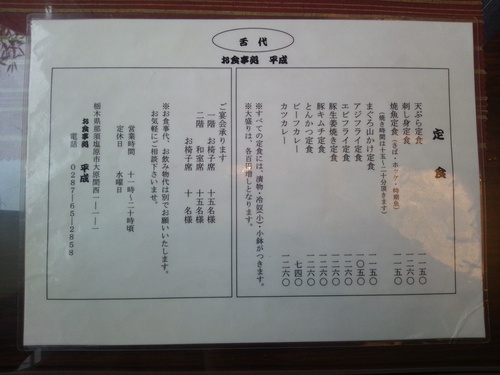 舌代
お食事処 平成
定食
天ぷら定食 一一五〇
刺し身定食 一二六〇
焼魚定食(さば・ホッケ・) 一一五〇
(焼き時間は十五~二十分頂きます)
まぐろ山かけ定食 一一五〇
アジフライ定食 一〇五〇
エビフライ定食 一二六〇
豚生姜焼き定食 一二六〇
豚キムチ定食 一二六〇
とんかつ定食 一二六〇
ビーフカレー 七四〇
カツカレー 一二六〇
※すべての定食には、漬物・冷奴(小)・小鉢がつきます。
※大盛りは、各百円増しとなります。
ご宴会承ります
一階 お椅子席 十五名様
二階 和室席 十五名様
お椅子席 十名様
※お食事代、お飲み物代は別でお願いいたします。
お気軽にご相談下さいませ。
営業時間 十一時~二十時頃
定休日 水曜日
栃木県那須塩原市大原間西一-一-一
お食事処 平成
電話 0287-65-2858